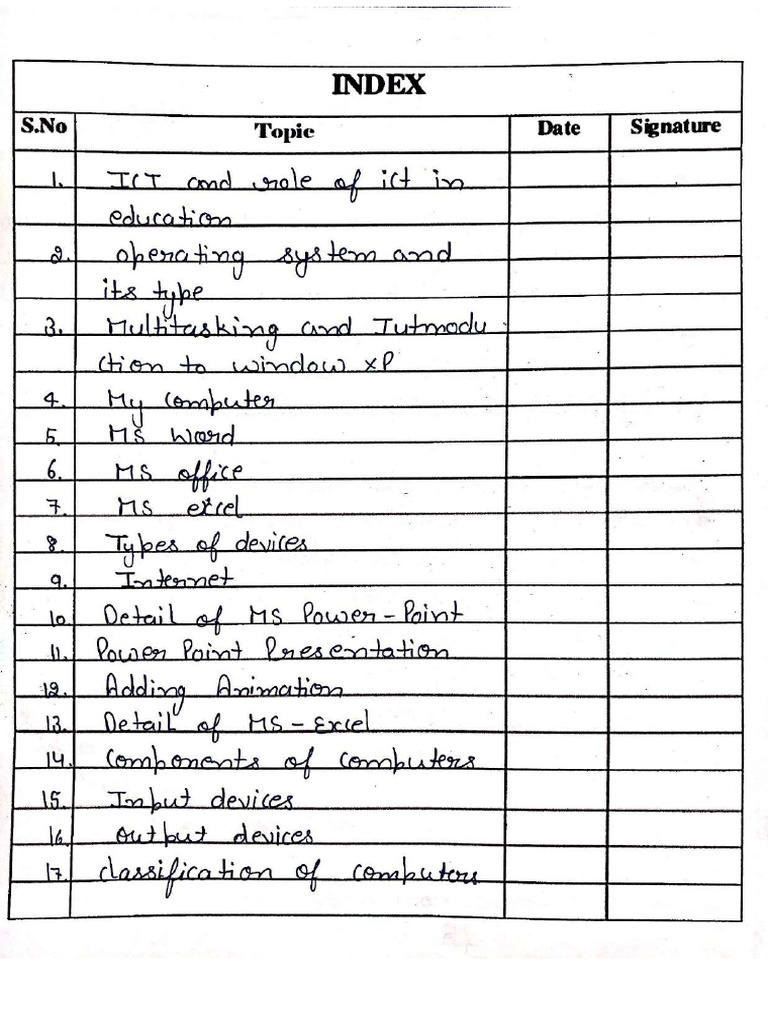 INDEX
S.No Topic Date Signature
1. ICT and role of ict in
education
2. operating system and
its type
3. Multitasking and Intmodu
ction to window xP
4. My computer
5. MS Word
6. MS office
7. MS excel
8. Types of devices
9. Internet
10. Detail of MS Power-Point
11. Power Point Presentation
12. Adding Animation
13. Detail of MS-Excel
14. Components of computers
15. Input devices
16. Output devices
17. Classification of computers